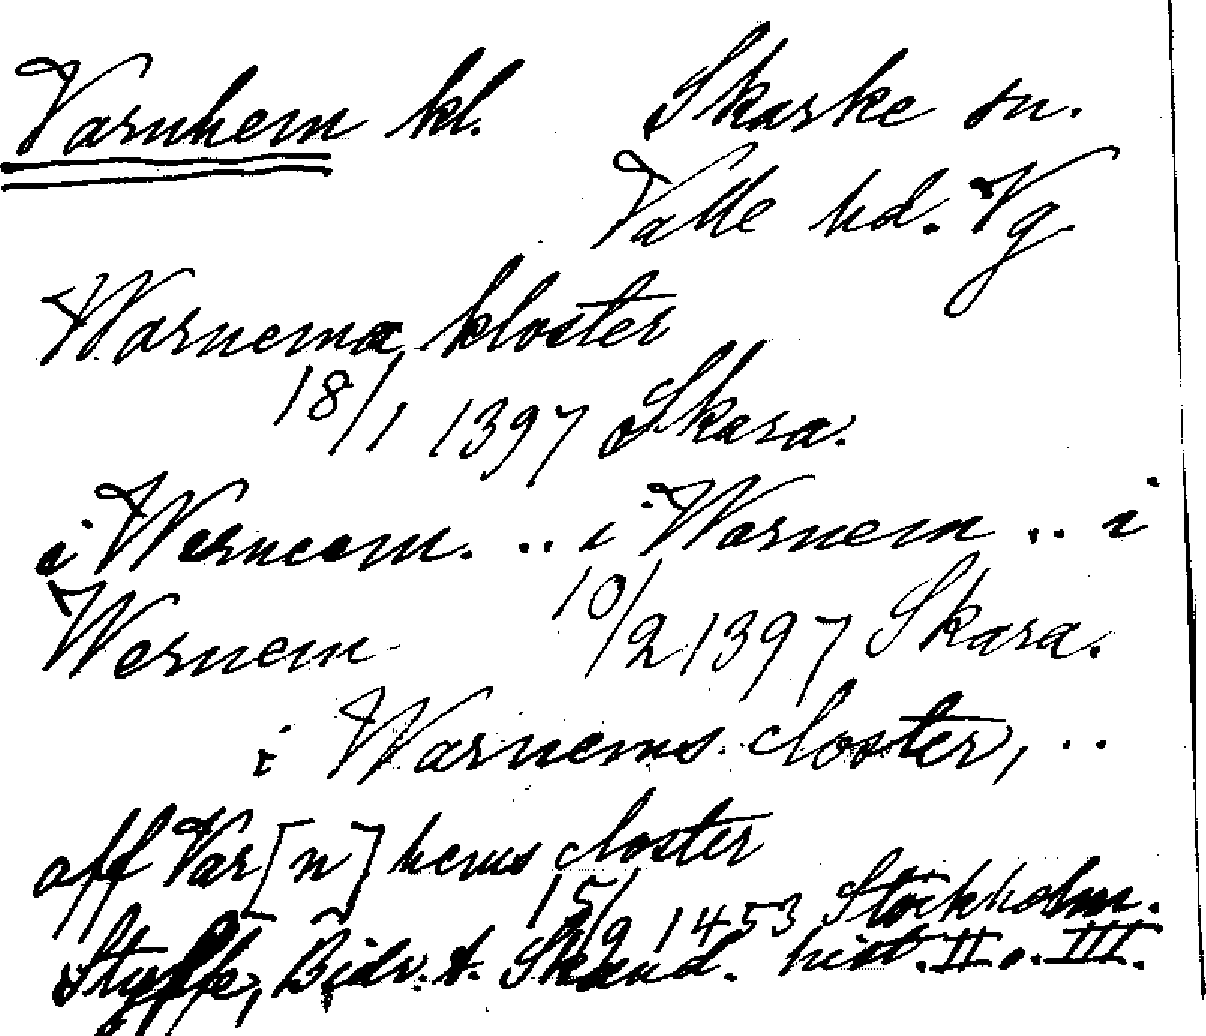 Varnhem kl. Skarke sn.
Valle hd. Vg.
Warnemæ kloster
18/1 1397 Skara.
i Wernæm. .. i Warnem .. i
Wernem 10/2 1397 Skara.
i Warnems closter, ..
aff Var[n]hems closter
15/9 1453 Stockholm.
Styffe, Bidr. t. Skand. hist. II o. III.